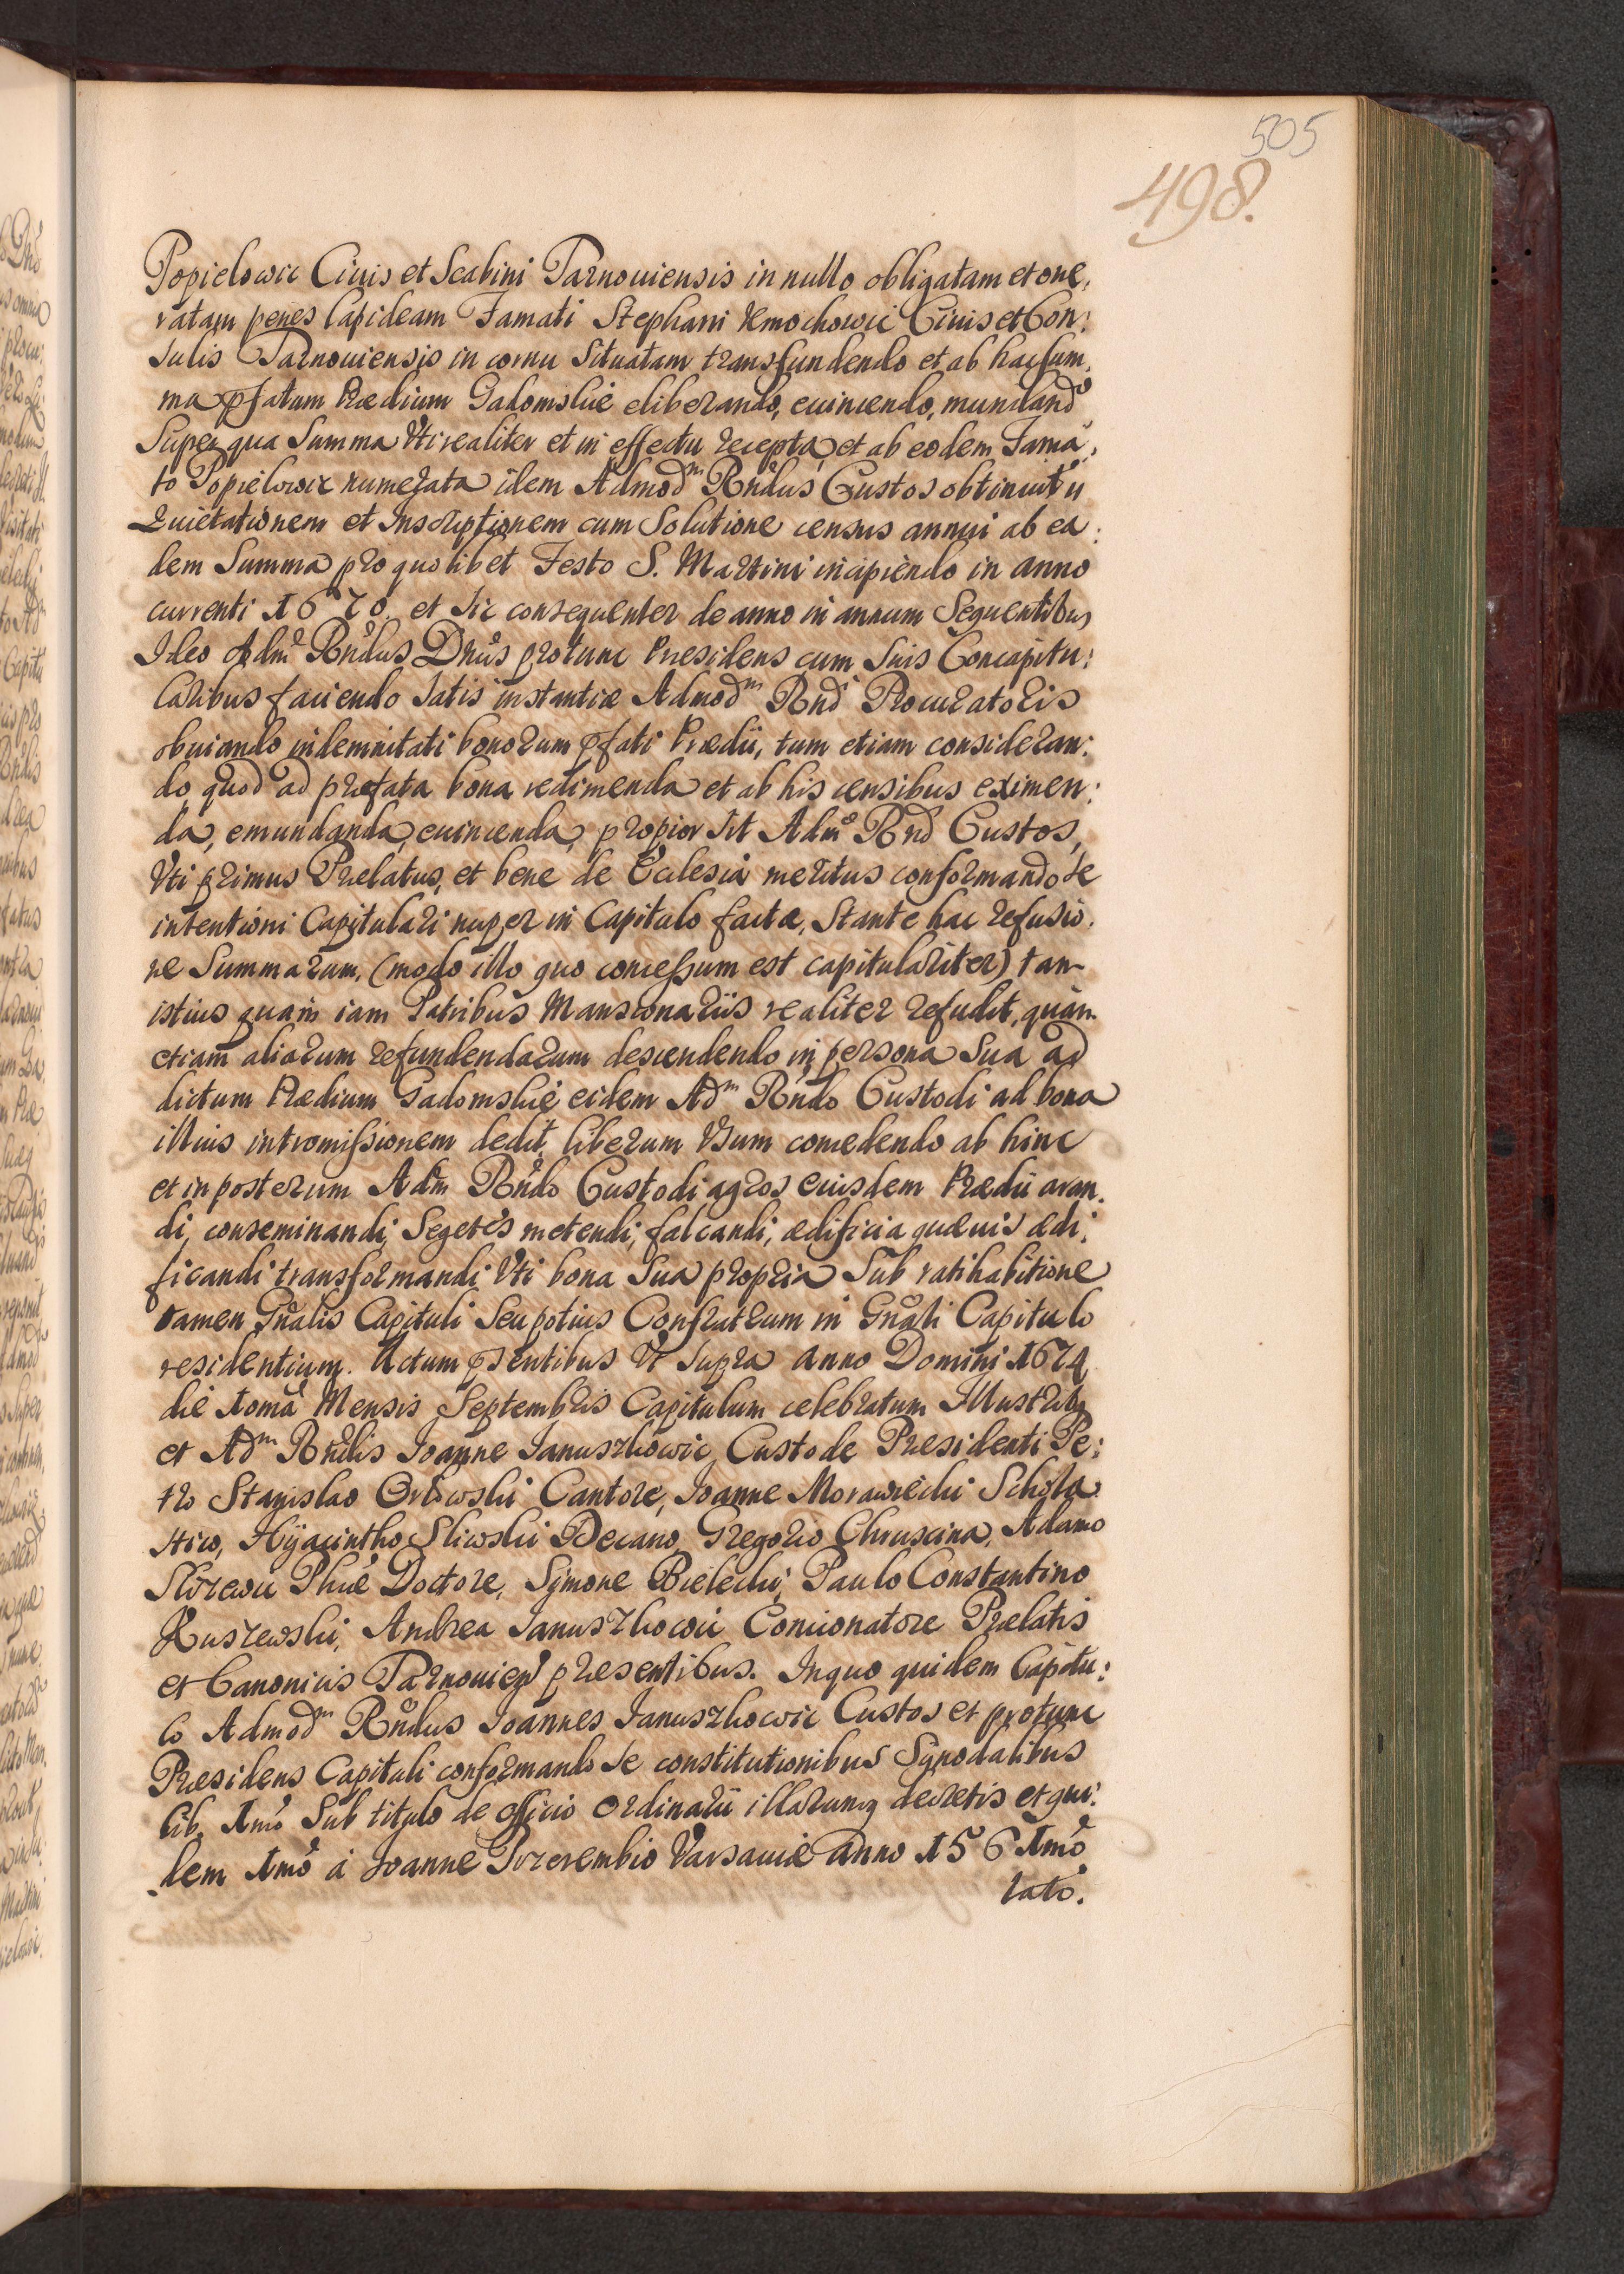 505
498.
Popielowic Ciuis et Scabini Tarnouiensis in nullo obligatam et one,
ratam penes lapideam Famati Stephani Kmochowic Ciuis et Con:
sulis Tarnouiensis in cornu Situatam transfundendo et ab hac sum,
ma pfatum Prædium Gadomskie eliberando, euincendo, mundand
Super qua Summa Vti realiter et in effectu recepta, et ab eodem Fama,
to Popielowic numerata idem Admodm Rndus Custos obtinuit
Quietationem et Inscriptionem cum Solutione census annui ab ea:
dem Summa pro quolibet Festo S. Martini incipiendo in anno
currenti 1670. et sic consequenter de anno in annum Sequentibus
Ideo Adm Rndus Dnus protunc Præsidens cum Suis Concapitu:
laribus faciendo Satis instantiæ Admodm Rnd Procuratoris
obuiando indemnitati bonorum pfati Prædii, tum etiam consideran:
do quod ad præfata bona redimenda et ab his censibus eximen:
da, emundanda, euincenda, propior sit Adm Rnd Custos,
Vti primus Prælatus, et bene de Ecclesia meritus conformando se
intentioni Capitulari nuper in Capitulo factæ, Stante hac refusio.
ne Summarum, (modo illo quo concessum est capitulariter) tam
istius quam iam Patribus Mansionariis realiter refudit, quam
etiam aliarum refundendarum descendendo in persona Sua ad
dictum Prædium Gadomskie eidem Adm Rndo Custodi ad bona
illius intromissionem dedit, liberum Vsum concedendo ab hinc
et in posterum Adm Rndo Custodi agros eiusdem Prædii aran.
di, conseminandi, Segetes metendi, falcandi, ædificia quæuis ædi,
ficandi transformandi Vti bona Sua propria Sub ratihabitione
tamen Gnalis Capituli Seu potius Confratrum in Gnali Capitulo
residentium. Actum psentibus Vt Supra Anno Domini 1674
die 10ma Mensis Septembris Capitulum celebratum Illustribq
et Adm Rndis Joanne Januszkowic Custode Præsidenti Pe:
tro Stanislao Orłowski Cantore, Joanne Morawiecki Schola
stico, Hyacintho Sliwski Decano, Gregorio Chruscina, Adamo
Phiæ Doctore, Symone Bielecki, Paulo Constantino
Kuszewski, Andrea Januszkowic Concionatore Prælatis
et Canonicis Tarnouien præsentibus. In quo quidem Capitu:
lo Admodm Rndus Joannes Januszkowic Custos et protunc
Præsidens Capituli conformando se constitutionibus Synodalibus
lib. 1mo Sub titulo de officio Ordinarii illarumq decretis et qui:
dem 1mo à Joanne Przerembio Varsauiæ Anno 1561mo
lato.